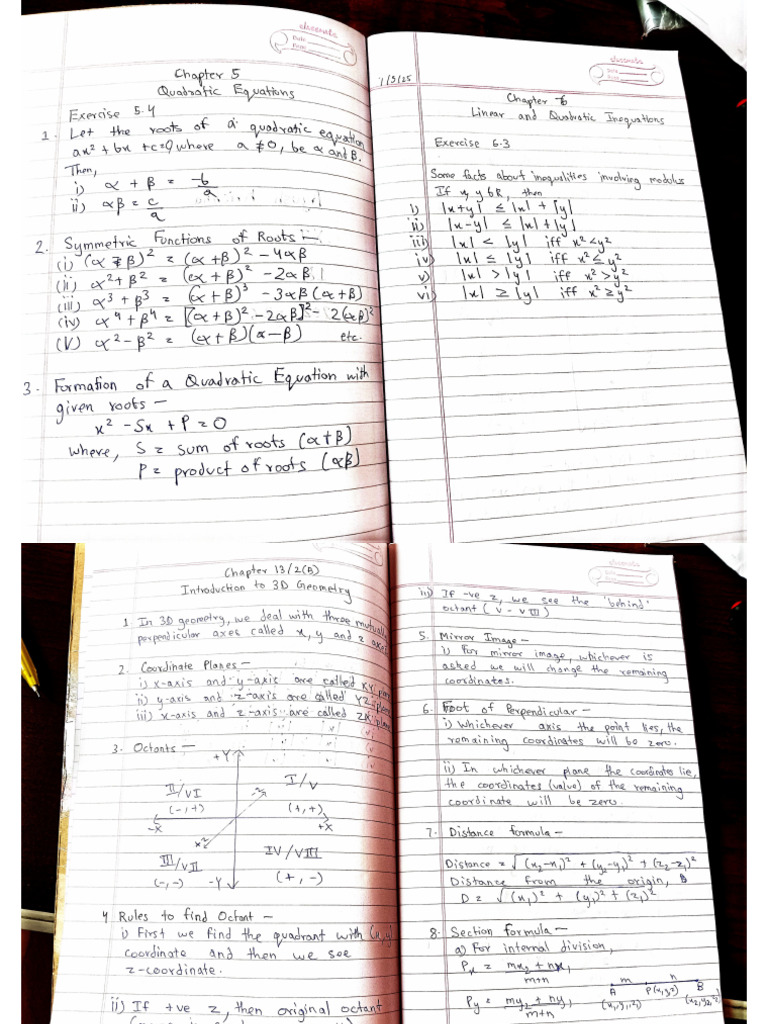 classmate
Date
Page
Chapter 5
Quadratic Equations
Exercise 5.4
1. Let the roots of a quadratic equation
ax² + bx + c = 0 where a ≠ 0, be α and β.
Then,
i) α + β = -b/a
ii) αβ = c/a
2. Symmetric Functions of Roots :-
(i) (α - β)² = (α + β)² - 4αβ
(ii) α² + β² = (α + β)² - 2αβ
(iii) α³ + β³ = (α + β)³ - 3αβ (α + β)
(iv) α⁴ + β⁴ = [(α + β)² - 2αβ]² - 2(αβ)²
(v) α² - β² = (α + β)(α - β) etc.
3. Formation of a Quadratic Equation with
given roots -
x² - Sx + P = 0
where, S = sum of roots (α+β)
P = product of roots (αβ)
classmate
Date
Page
7/3/25
Chapter 6
Linear and Quadratic Inequations
Exercise 6.3
Some facts about inequalities involving modulus
If x, y ∈ R, then
i) |x+y| ≤ |x| + |y|
ii) |x-y| ≤ |x| + |y|
iii) |x| < |y| iff x² < y²
iv) |x| ≤ |y| iff x² ≤ y²
v) |x| > |y| iff x² > y²
vi) |x| ≥ |y| iff x² ≥ y²
Chapter 13/2(B)
Introduction to 3D Geometry
1. In 3D geometry, we deal with three mutually
perpendicular axes called x, y and z axes
2. Coordinate Planes -
i) x-axis and y-axis are called XY plane
ii) y-axis and z-axis are called YZ-plane
iii) x-axis and z-axis are called ZX-plane
3. Octants -
+Y
II/VI I/V
(-,+) (+,+)
-X +X
III/VII IV/VIII
(-,-) -Y (+,-)
4 Rules to find Octant -
i) First we find the quadrant with (x,y)
coordinate and then we see
z-coordinate.
ii) If +ve z, then original octant
classmate
iii) If -ve z, we see the 'behind'
octant (V - VIII)
5. Mirror Image -
i) For mirror image, whichever is
asked we will change the remaining
coordinates.
6. Foot of Perpendicular -
i) Whichever axis the point lies, the
remaining coordinates will be zero.
ii) In whichever plane the coordinates lie,
the coordinates (value) of the remaining
coordinate will be zero.
7. Distance formula -
Distance = √(x₂-x₁)² + (y₂-y₁)² + (z₂-z₁)²
Distance from the origin,
D = √(x₁)² + (y₁)² + (z₁)²
8. Section formula -
a) For internal division,
Px = mx₂ + nx₁ / m+n
m n
A P(x,y,z) B
(x₁,y₁,z₁) (x₂,y₂,z₂)
Py = my₂ + ny₁ / m+n